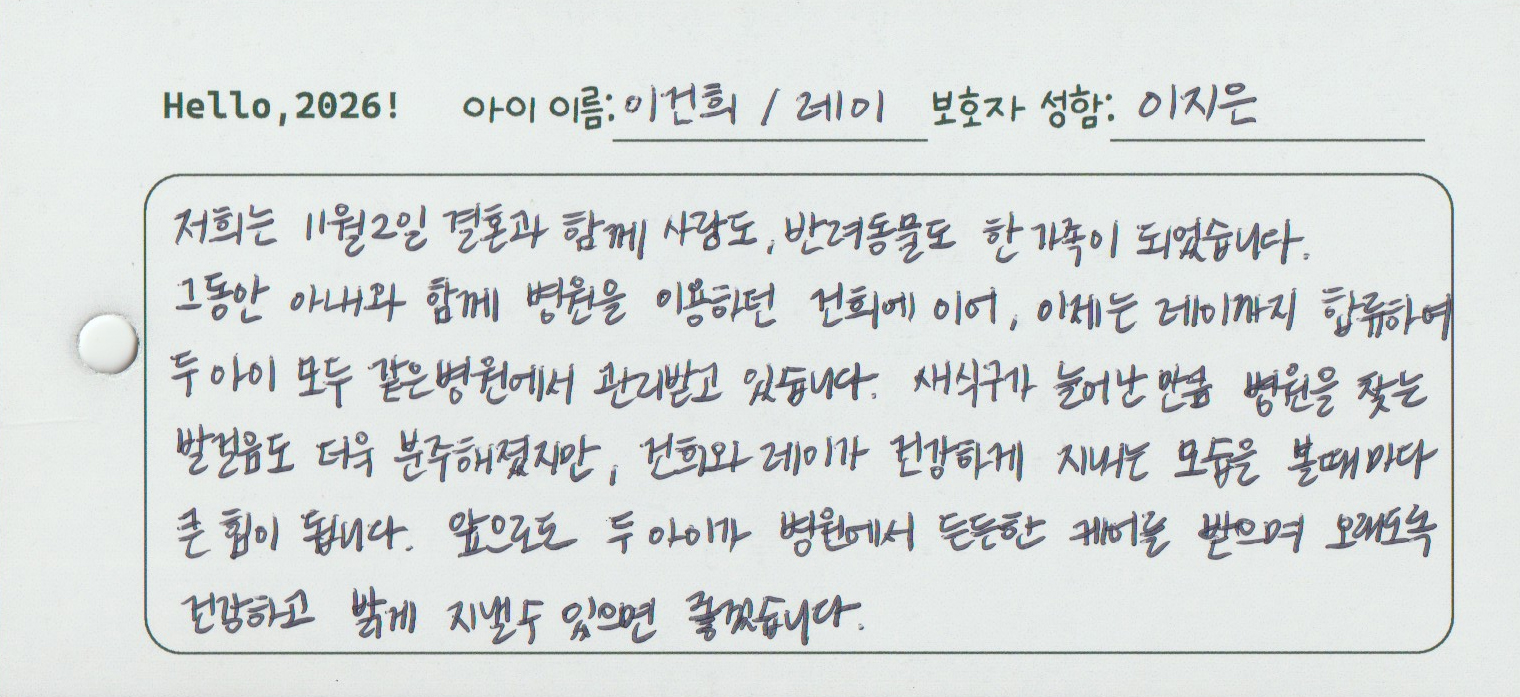 Hello, 2026! 아이 이름: 이건희 / 레이 보호자 성함: 이지은
저희는 11월2일 결혼과 함께 사랑도, 반려동물도 한 가족이 되었습니다.
그동안 아내와 함께 병원을 이용하던 건희에 이어, 이제는 레이까지 합류하여
두 아이 모두 같은병원에서 관리받고 있습니다. 새식구가 늘어난 만큼 병원을 찾는
발걸음도 더욱 분주해졌지만, 건희와 레이가 건강하게 지내는 모습을 볼때마다
큰 힘이 됩니다. 앞으로도 두 아이가 병원에서 든든한 케어를 받으며 오래도록
건강하고 밝게 지낼수 있으면 좋겠습니다.